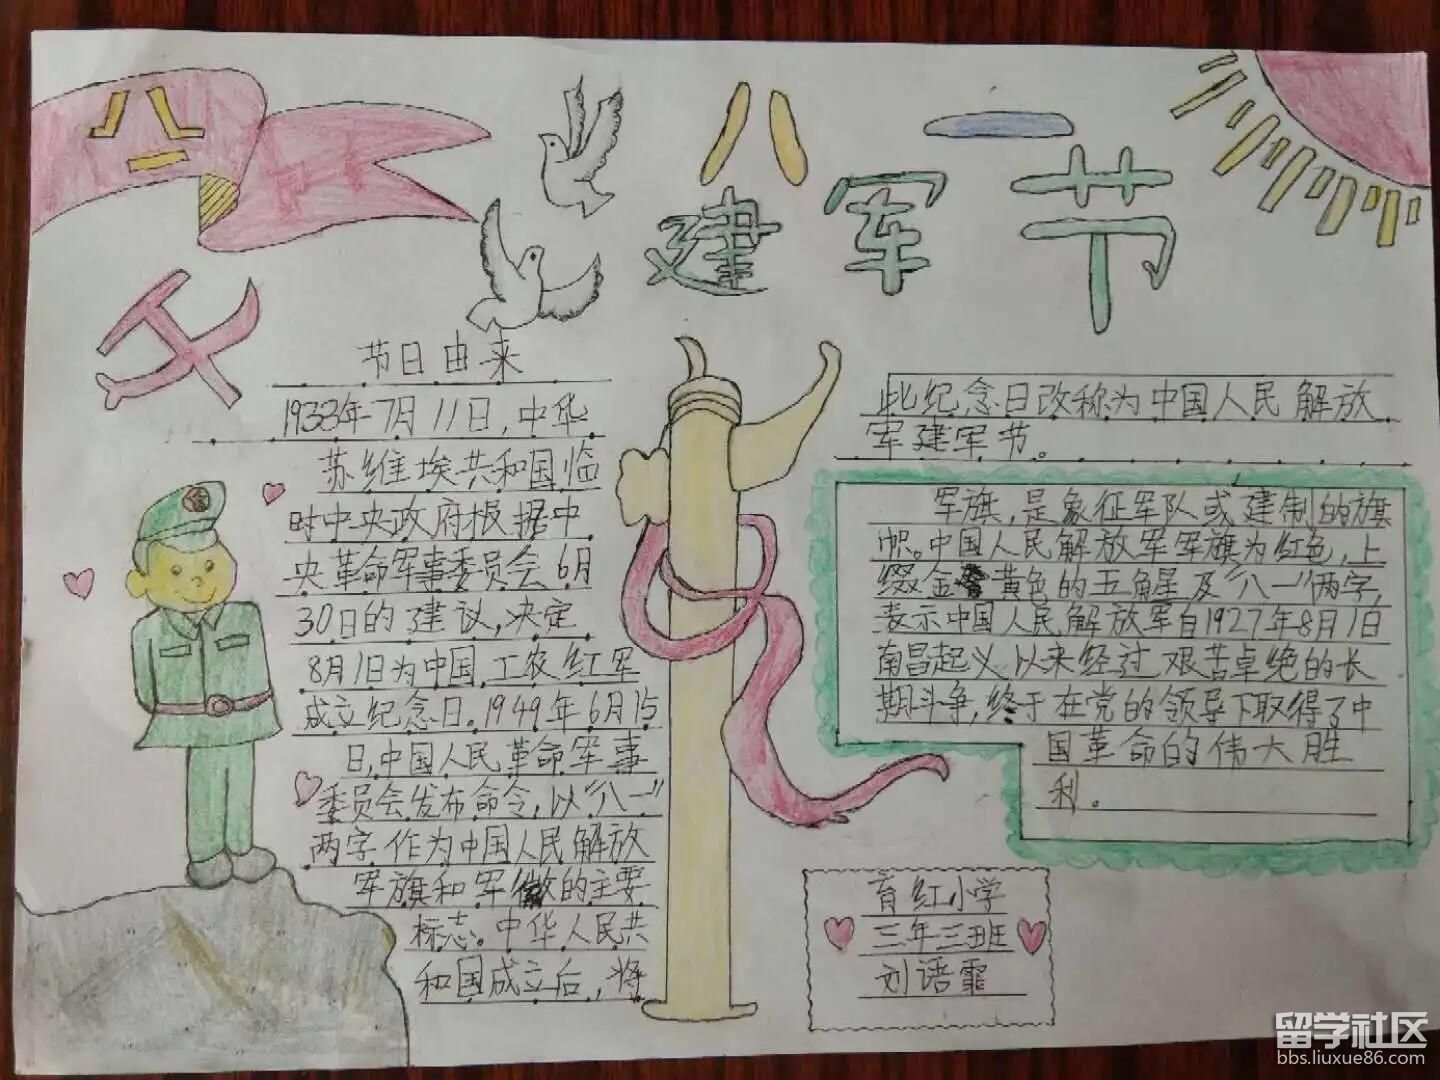 八一
八一
建军节
节日由来
1933年7月11日,中华
苏维埃共和国临
时中央政府根据中
央革命军事委员会6月
30日的建议,决定
8月1日为中国工农红军
成立纪念日。1949年6月15
日,中国人民革命军事
委员会发布命令,以“八一”
两字作为中国人民解放
军旗和军徽的主要
标志。中华人民共
和国成立后,将
此纪念日改称为中国人民解放
军建军节。
军旗,是象征军队或建制的旗
帜。中国人民解放军军旗为红色,上
缀金黄色的五角星及“八一”两字,
表示中国人民解放军自1927年8月1日
南昌起义以来经过艰苦卓绝的长
期斗争,终于在党的领导下取得了中
国革命的伟大胜
利。
育红小学
三年三班
刘语霏
留学社区
bbs.liuxue86.com